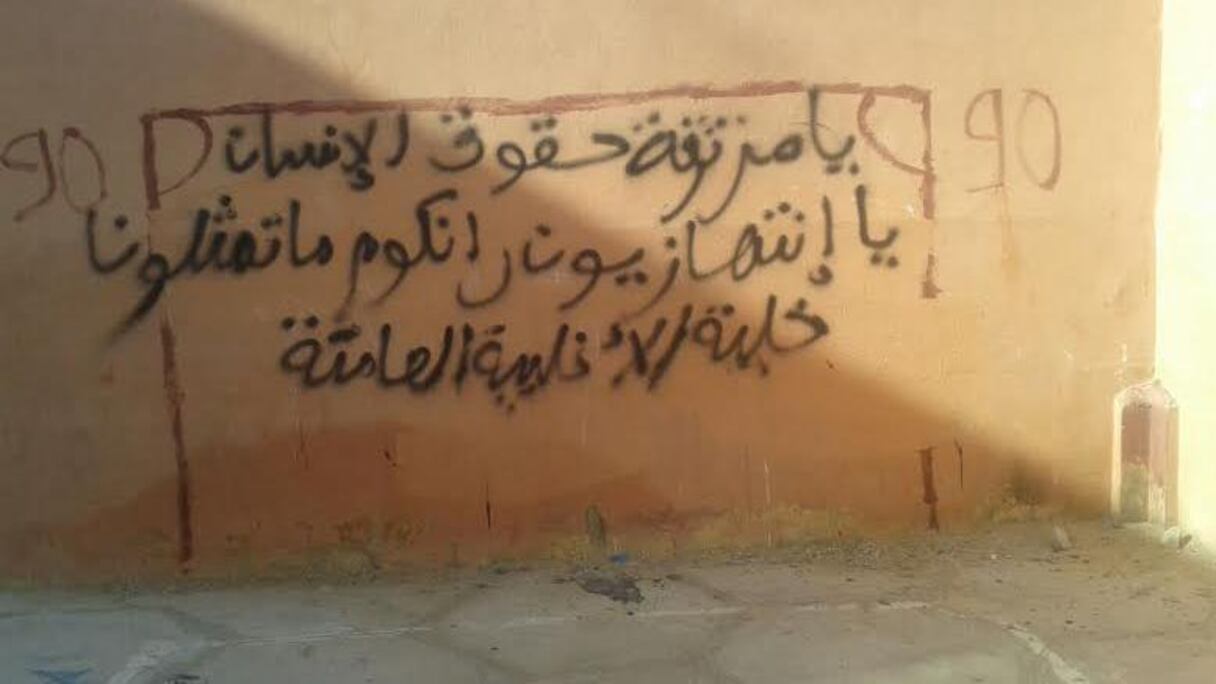 يا مرتزقة حقوق الإنسان
يا إنتهازيون رانكوم ماتمثلونا
خلية الأغلبية الصامتة
90
90